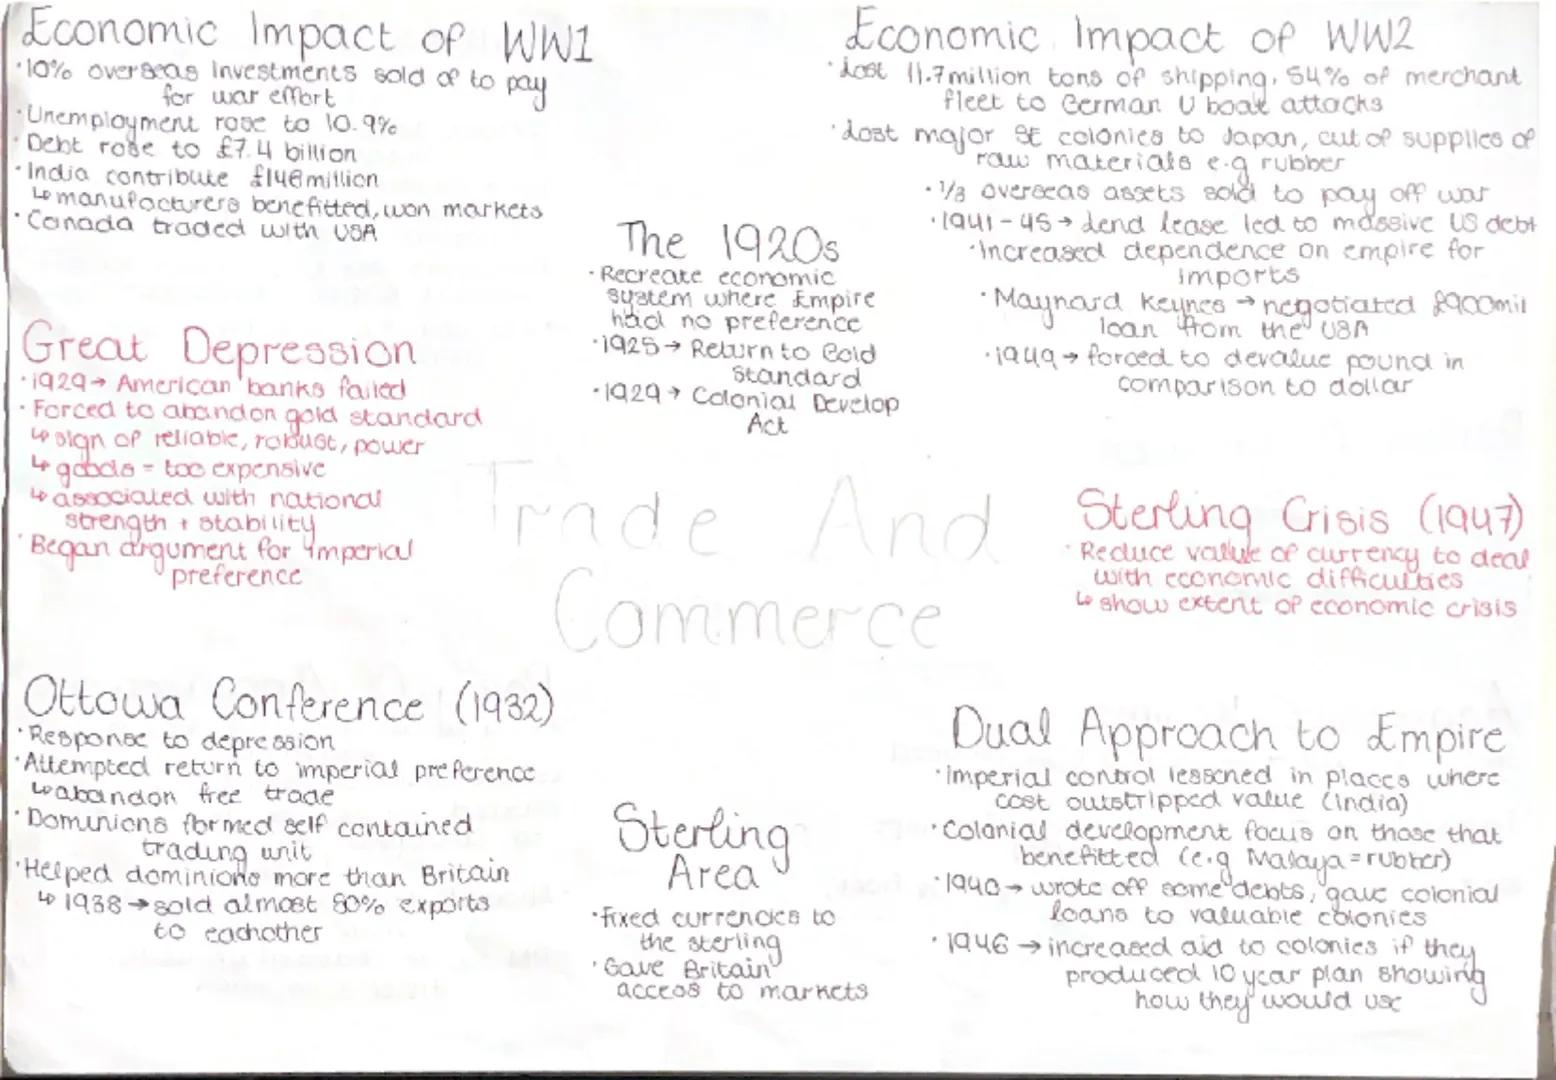 Economic Impact of WW1
·10% overseas investments sold of to pay
for war effort
·Unemployment rose to 10.9%
·Debt rose to £7.4 billion
·India contribute £146million
↳manufacturers benefitted, won markets
·Canada traded with USA
Great Depression
·1929→ American banks failed
·Forced to abandon gold standard
↳sign of reliable, robust, power
↳goods = too expensive
↳associated with national
strength + stability
·Began argument for imperial
preference
Ottowa Conference (1932)
·Response to depression
·Attempted return to imperial preference
↳abandon free trade
·Dominions formed self contained
trading unit
·Helped dominions more than Britain
↳1938→sold almost 80% exports
to eachother
The 1920s
·Recreate economic
system where Empire
had no preference
·1925→ Return to Gold
Standard
·1929→ Colonial Develop
Act
Trade And
Commerce
Sterling
Area
·fixed currencies to
the sterling
·Gave Britain
access to markets
Economic Impact of WW2
·Lost 11.7million tons of shipping, 54% of merchant
fleet to German U boat attacks
·Lost major colonies to Japan, cut of supplies of
raw materials e.g rubber
·1/3 overseas assets sold to pay off war
·1941-45→ Lend lease led to massive US debt
·Increased dependence on empire for
imports
·Maynard Keynes → negotiated £900mil
loan from the USA
·1949→ forced to devalue pound in
comparison to dollar
Sterling Crisis (1947)
·Reduce value of currency to deal
with economic difficulties
↳show extent of economic crisis
Dual Approach to Empire
·imperial control lessened in places where
cost outstripped value (India)
·Colonial development focus on those that
benefitted (e.g Malaya=rubber)
·1940→ wrote off some debts, gave colonial
loans to valuable colonies
·1946→increased aid to colonies if they
produced 10 year plan showing
how they would use